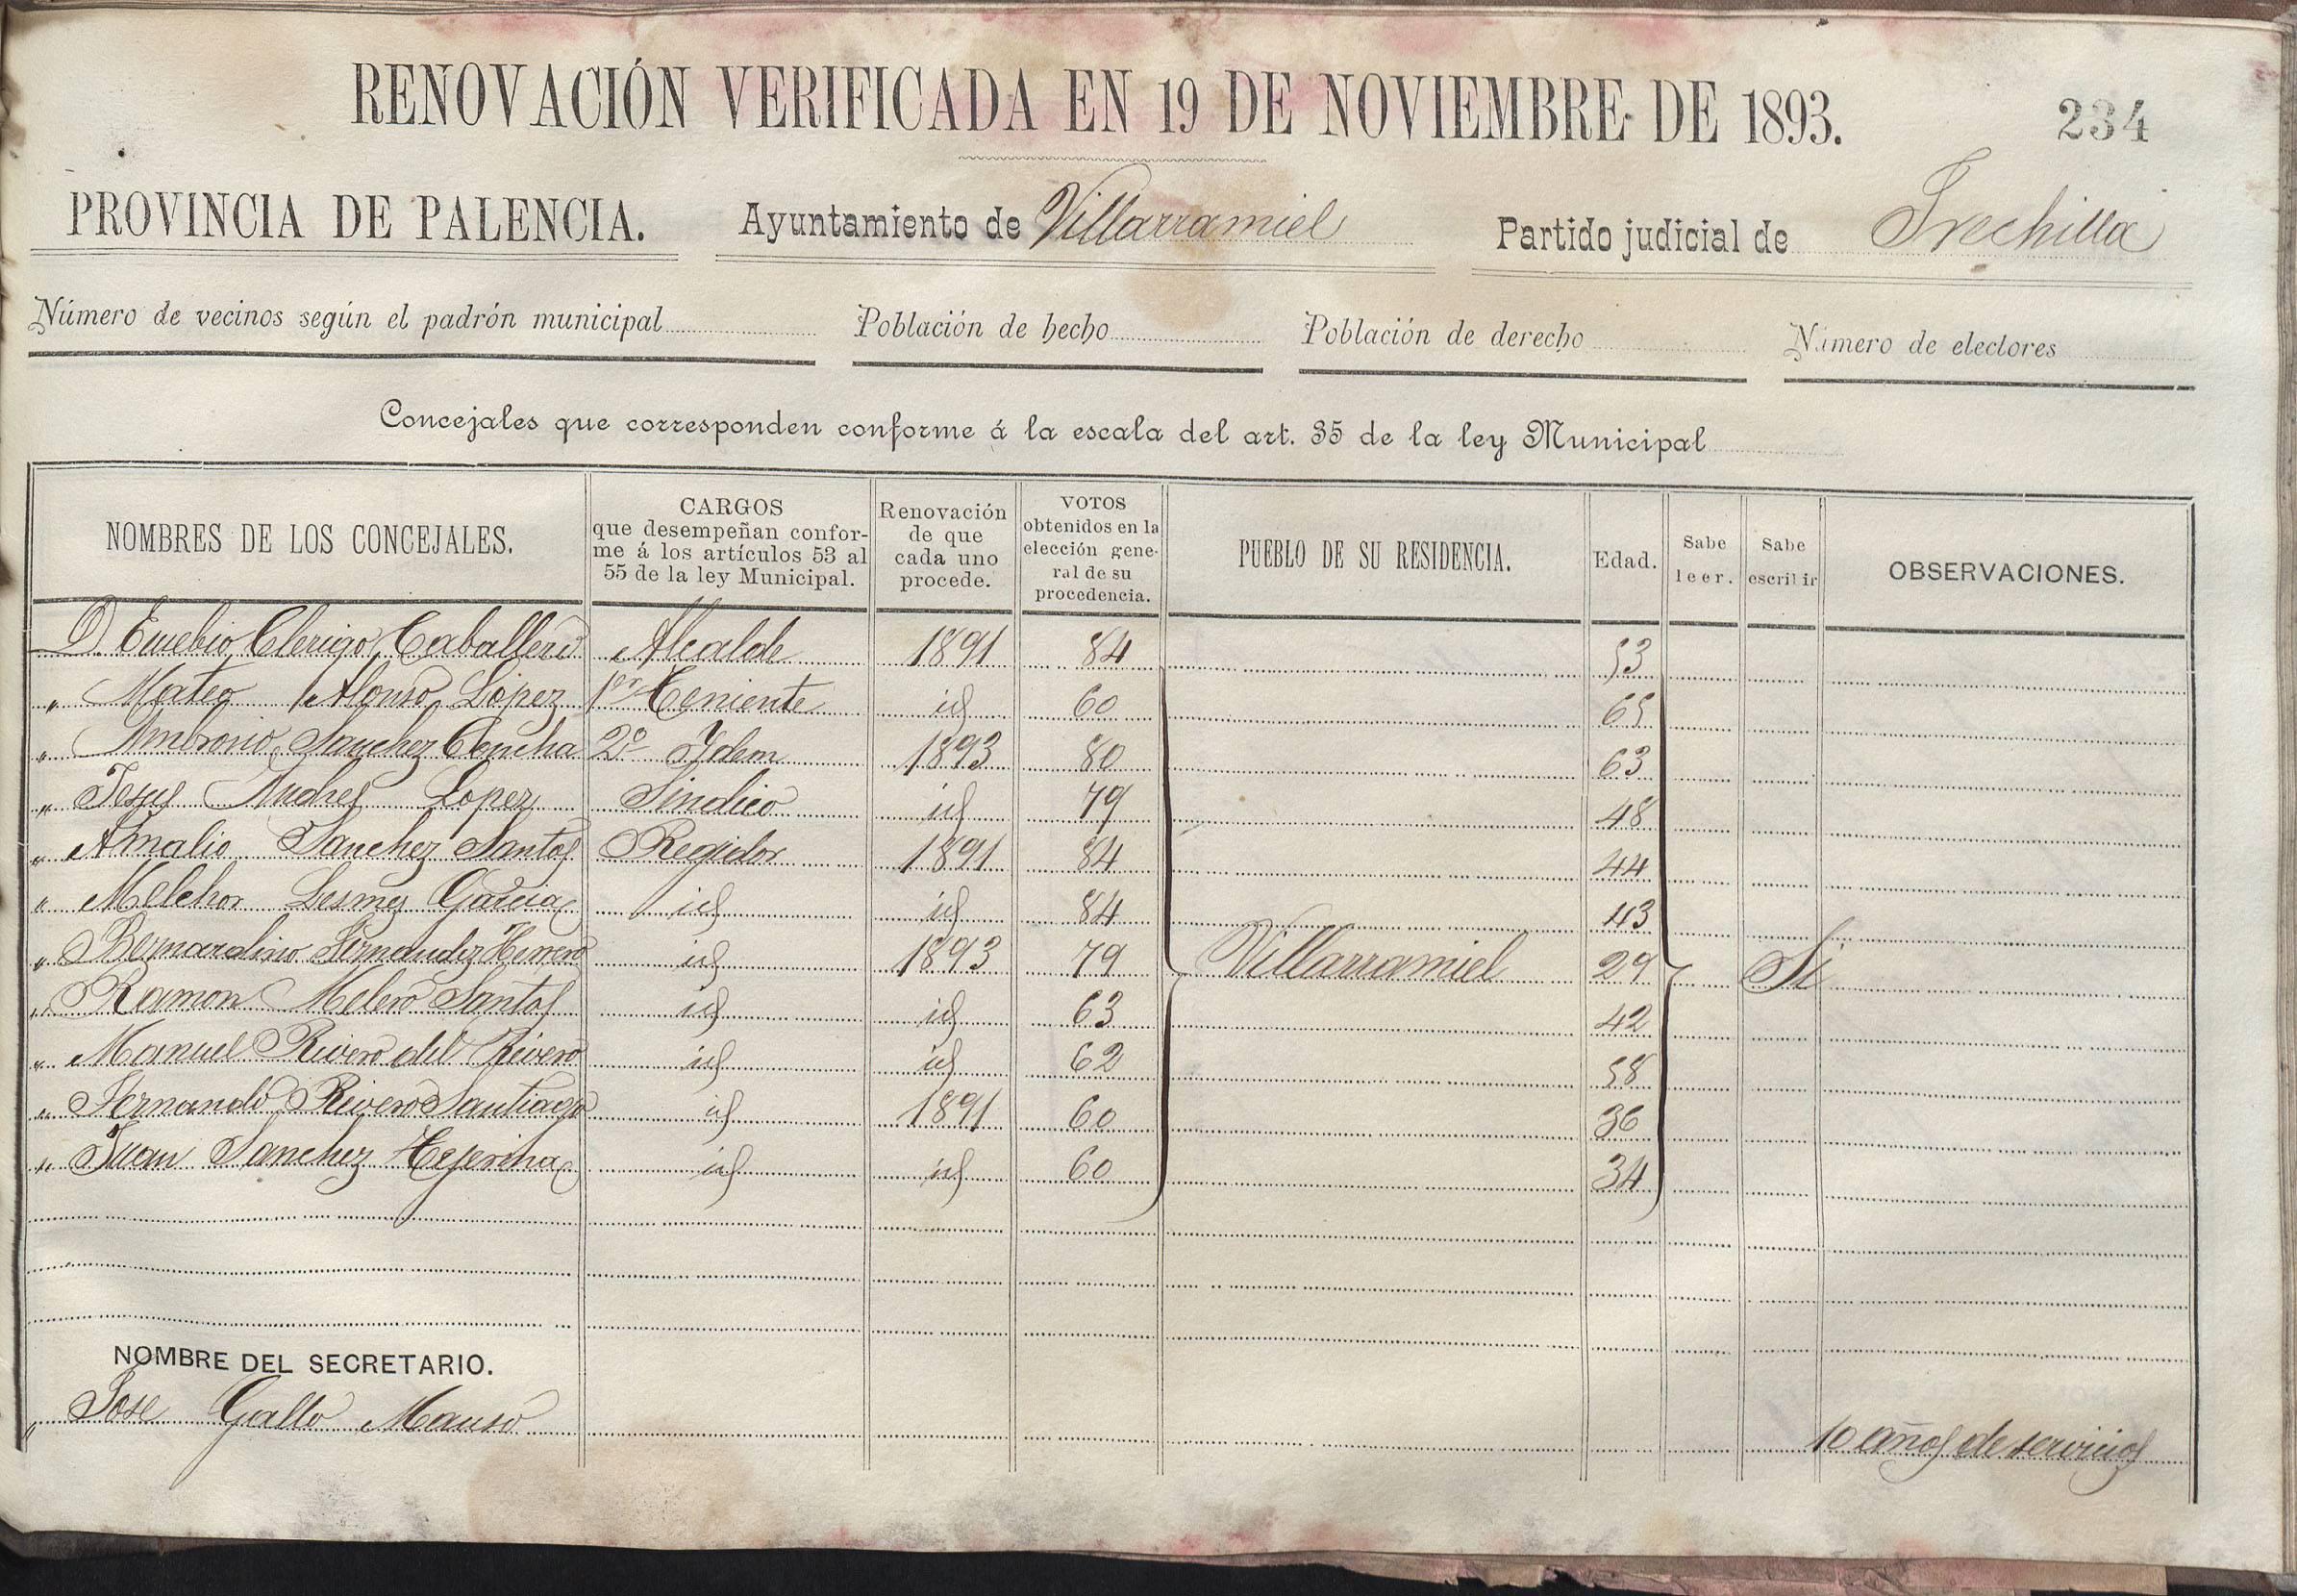 RENOVACIÓN VERIFICADA EN 19 DE NOVIEMBRE DE 1893.
234
PROVINCIA DE PALENCIA. Ayuntamiento de Villarramiel Partido judicial de Frechilla
Número de vecinos según el padrón municipal Población de hecho Población de derecho Número de electores
Concejales que corresponden conforme á la escala del art. 35 de la ley Municipal
NOMBRES DE LOS CONCEJALES.
CARGOS
que desempeñan confor-
me á los artículos 53 al
55 de la ley Municipal.
Renovación
de que
cada uno
procede.
VOTOS
obtenidos en la
elección gene-
ral de su
procedencia.
PUEBLO DE SU RESIDENCIA.
Edad.
Sabe
leer.
Sabe
escribir
OBSERVACIONES.
D. Eusebio Clerigo Caballero Alcalde 1891 84 53
" Mateo Alonso Lopez 1er Teniente id 60 65
" Ambrosio Sanchez Concha 2º Idem 1893 80 63
" Jesus Andres Lopez Sindico id 79 48
" Amalio Sanchez Santos Regidor 1891 84 44
" Melchor Lesmes Garcia id id 84 43
" Bernardino Fernandez Herrero id 1893 79 Villarramiel 29 Si
" Ramon Melero Santos id id 63 42
" Manuel Rivero del Rivero id id 62 58
" Fernando Rivero Santiago id 1891 60 36
" Juan Sanchez Tejerina id id 60 34
NOMBRE DEL SECRETARIO.
" Jose Gallo Manso 10 años de servicios